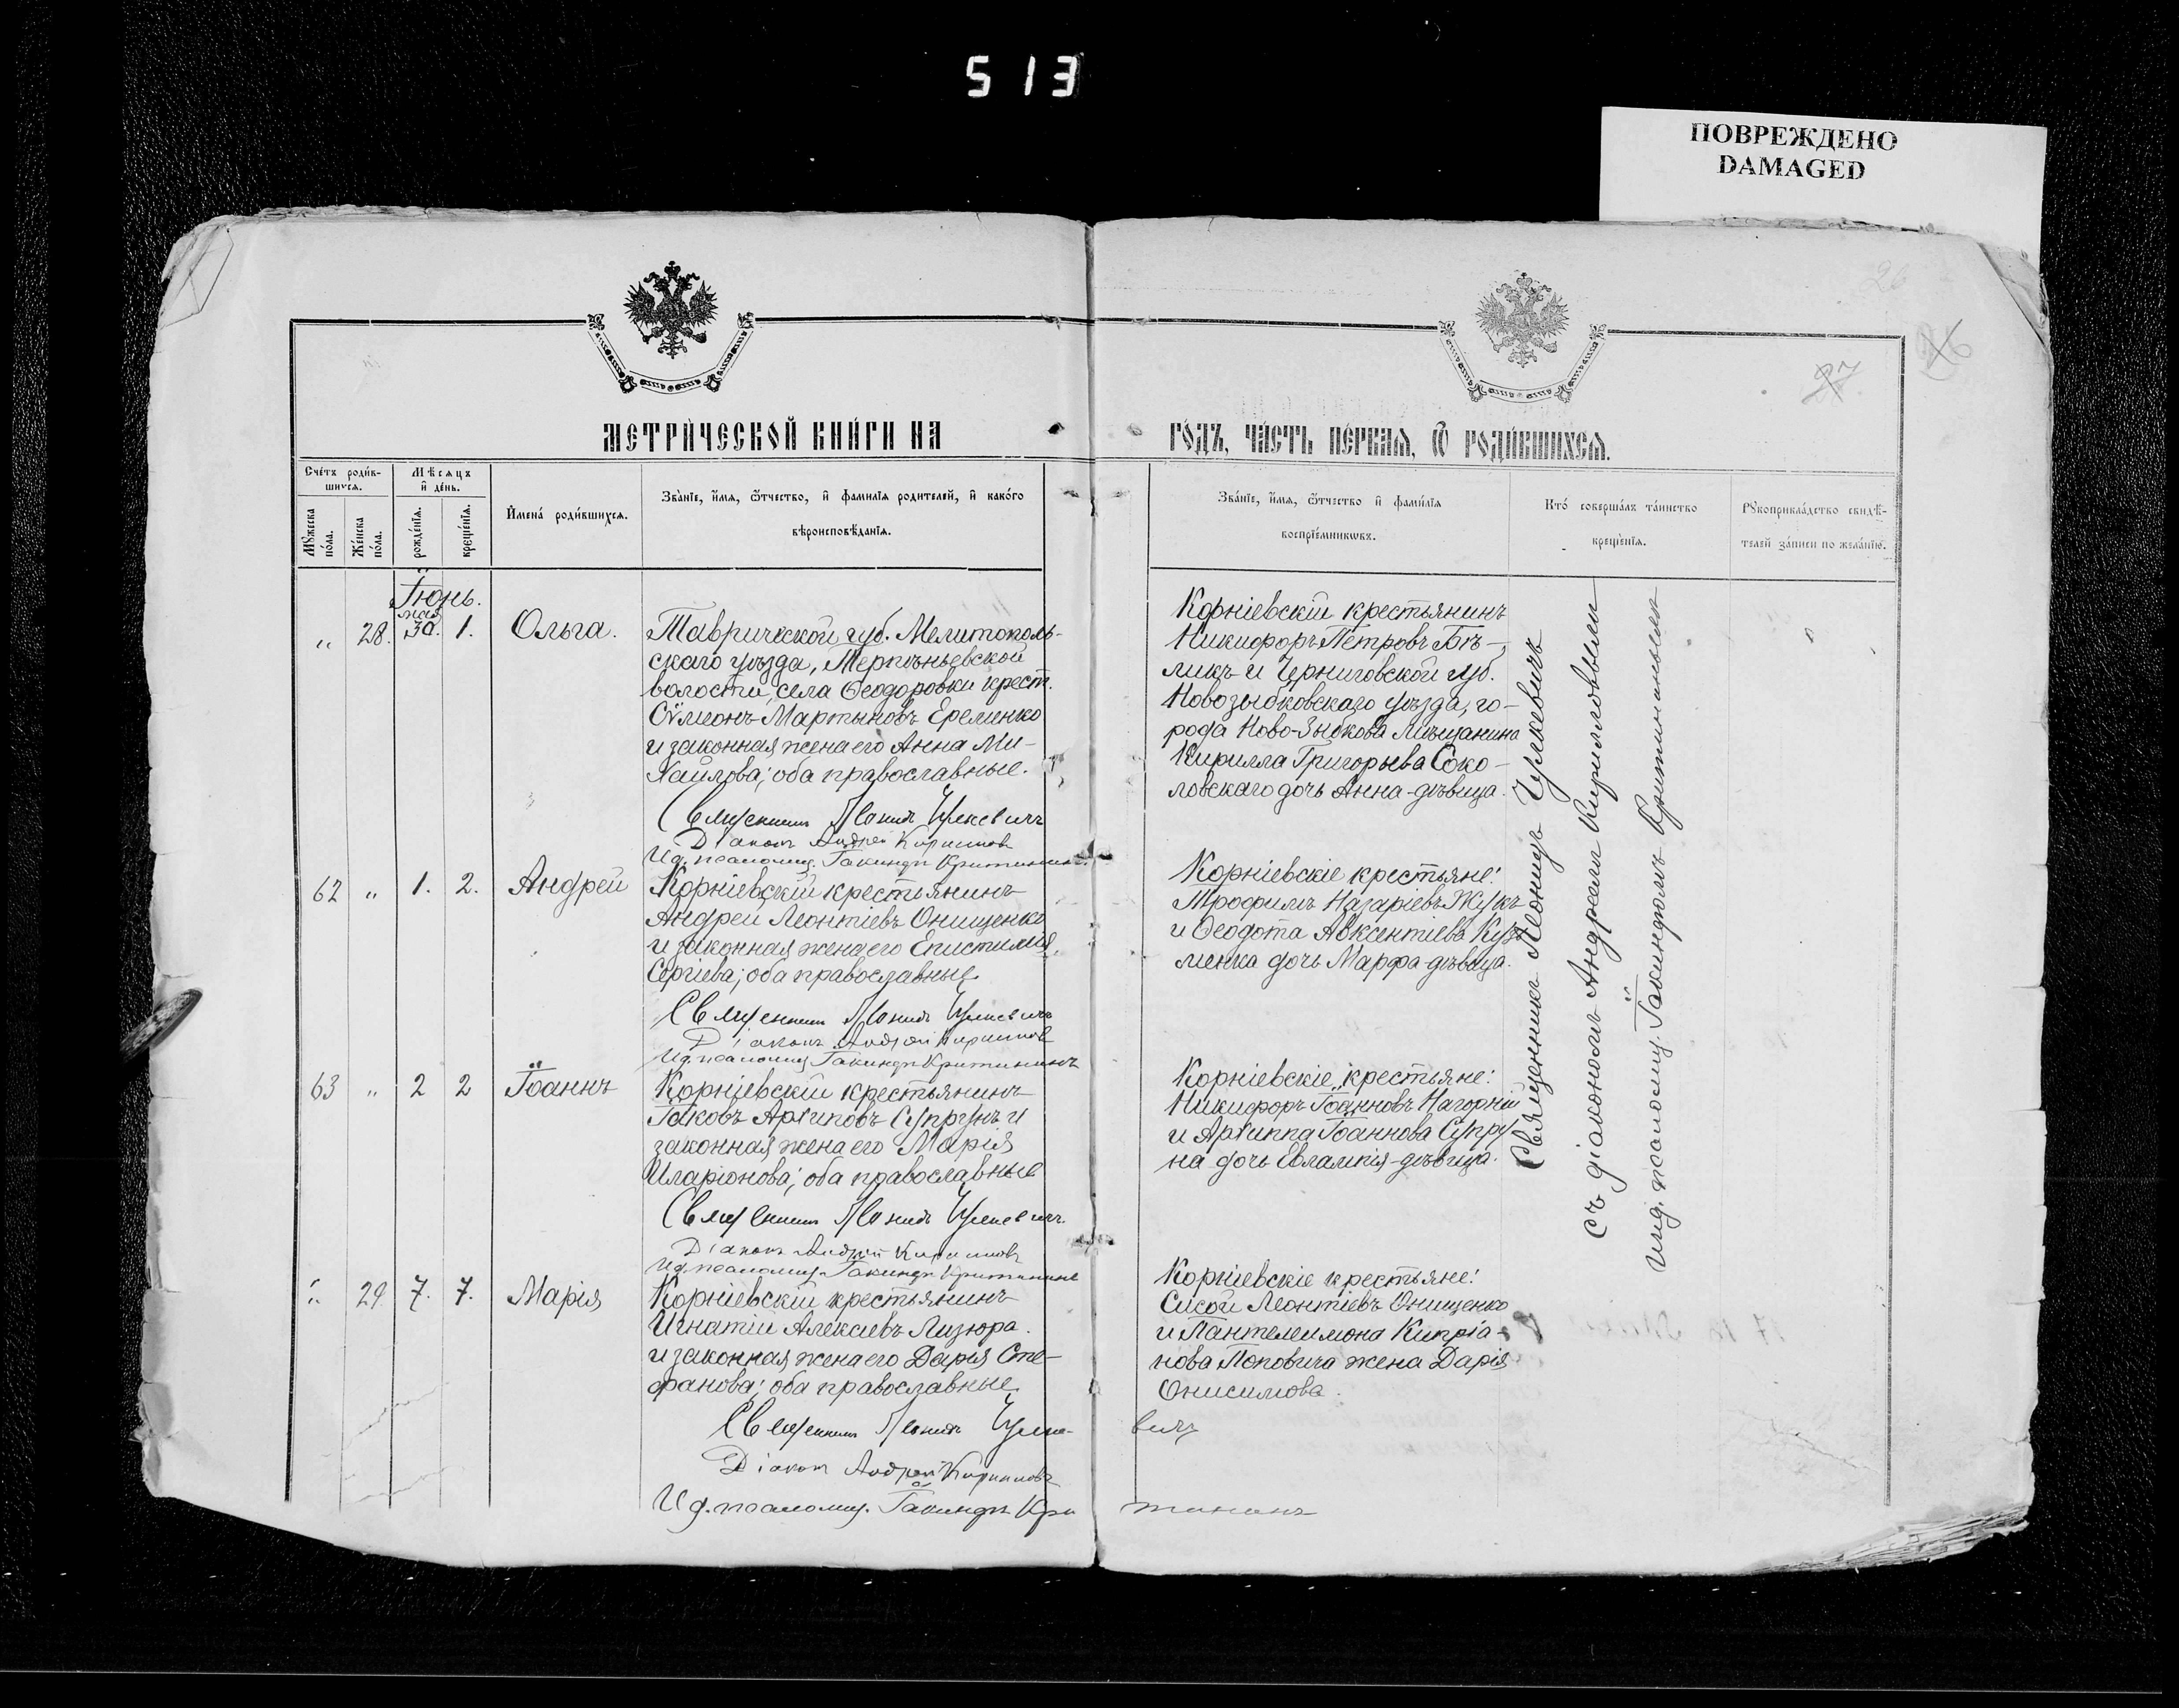 513
ПОВРЕЖДЕНО
DAMAGED
26
27
26
МЕТРИ́ЧЕСКОЙ КНИ́ГИ НА
ГО́ДЪ, ЧА́СТЬ ПЕ́РВАѦ, Ѿ РОДИ́ВШИХСѦ.
Сче́тъ роди́в-
шихсѧ.
Мѣсѧцъ
и де́нь.
Мꙋ́жеска
по́ла.
Же́нска
по́ла.
рожде́нїѧ.
креще́нїѧ.
Имена́ роди́вшихсѧ.
Зва́нїе, и́мѧ, ѻ́тчество, и фами́лїѧ родителей, и како́го
вѣроисповѣ́данїѧ.
Зва́нїе, и́мѧ, ѻ́тчество и фами́лїѧ
воспрїе́мникѡвъ.
Кто́ соверша́лъ та́инство
креще́нїѧ.
Рꙋкоприкла́дство свидѣ́-
телей за́писи по жела́нїю.
Іюнь.
мая
„ 28. 30. 1. Ольга.
Таврической губ. Мелитополь-
скаго уѣзда, Терпѣньевской
волости, села Ѳеодоровки крест.
Сѵмеонъ Мартыновъ Еременко
и законная жена его Анна Ми-
хайлова; оба православные.
Священникъ Леонидъ Чулкевичъ
Діаконъ Андрей Кирилловъ
И. д. псаломщ. Іакинѳъ Критининъ
Корніевскій крестьянинъ
Никифоръ Петровъ Бѣ-
ликъ и Черниговской губ.
Новозыбковскаго уѣзда, го-
рода Ново-Зыбкова мѣщанина
Кирилла Григорьева Соко-
ловскаго дочь Анна-дѣвица.
62 „ 1. 2. Андрей
Корніевскій крестьянинъ
Андрей Леонтіевъ Онищенко
и законная жена его Епистимія
Сергіева; оба православные
Священникъ Леонидъ Чулкевичъ
Діаконъ Андрей Кирилловъ
И. д. псаломщ. Іакинѳъ Критининъ
Корніевскіе крестьяне:
Трофимъ Назаріевъ Жукъ
и Ѳеодота Авксентіева Кузь
менка дочь Марфа-дѣвица.
63 „ 2 2 Іоаннъ
Корніевскій крестьянинъ
Іаковъ Архиповъ Супрунъ и
законная жена его Марія
Иларіонова; оба православные
Священникъ Леонидъ Чулкевичъ
Діаконъ Андрей Кирилловъ
И. д. псаломщ. Іакинѳъ Критининъ
Корніевскіе крестьяне:
Никифоръ Іоанновъ Нагорній
и Архиппа Іоаннова Супру-
на дочь Евлампія-дѣвица.
„ 29 7. 7. Марія
Корніевскій крестьянинъ
Игнатій Алексіевъ Лизюра
и законная жена его Дарія Сте-
фанова; оба православные
Священникъ Леонидъ Чулкевичъ
Діаконъ Андрей Кирилловъ
И. д. псаломщ. Іакинѳъ Критининъ
Корніевскіе крестьяне:
Сисой Леонтіевъ Онищенко
и Пантелеимона Кипріа-
нова Поповича жена Дарія
Онисимова.
Священникъ Леонидъ Чулкевичъ
съ діакономъ Андреемъ Кирилловымъ
и и. д. псаломщ. Іакинѳомъ Критининымъ